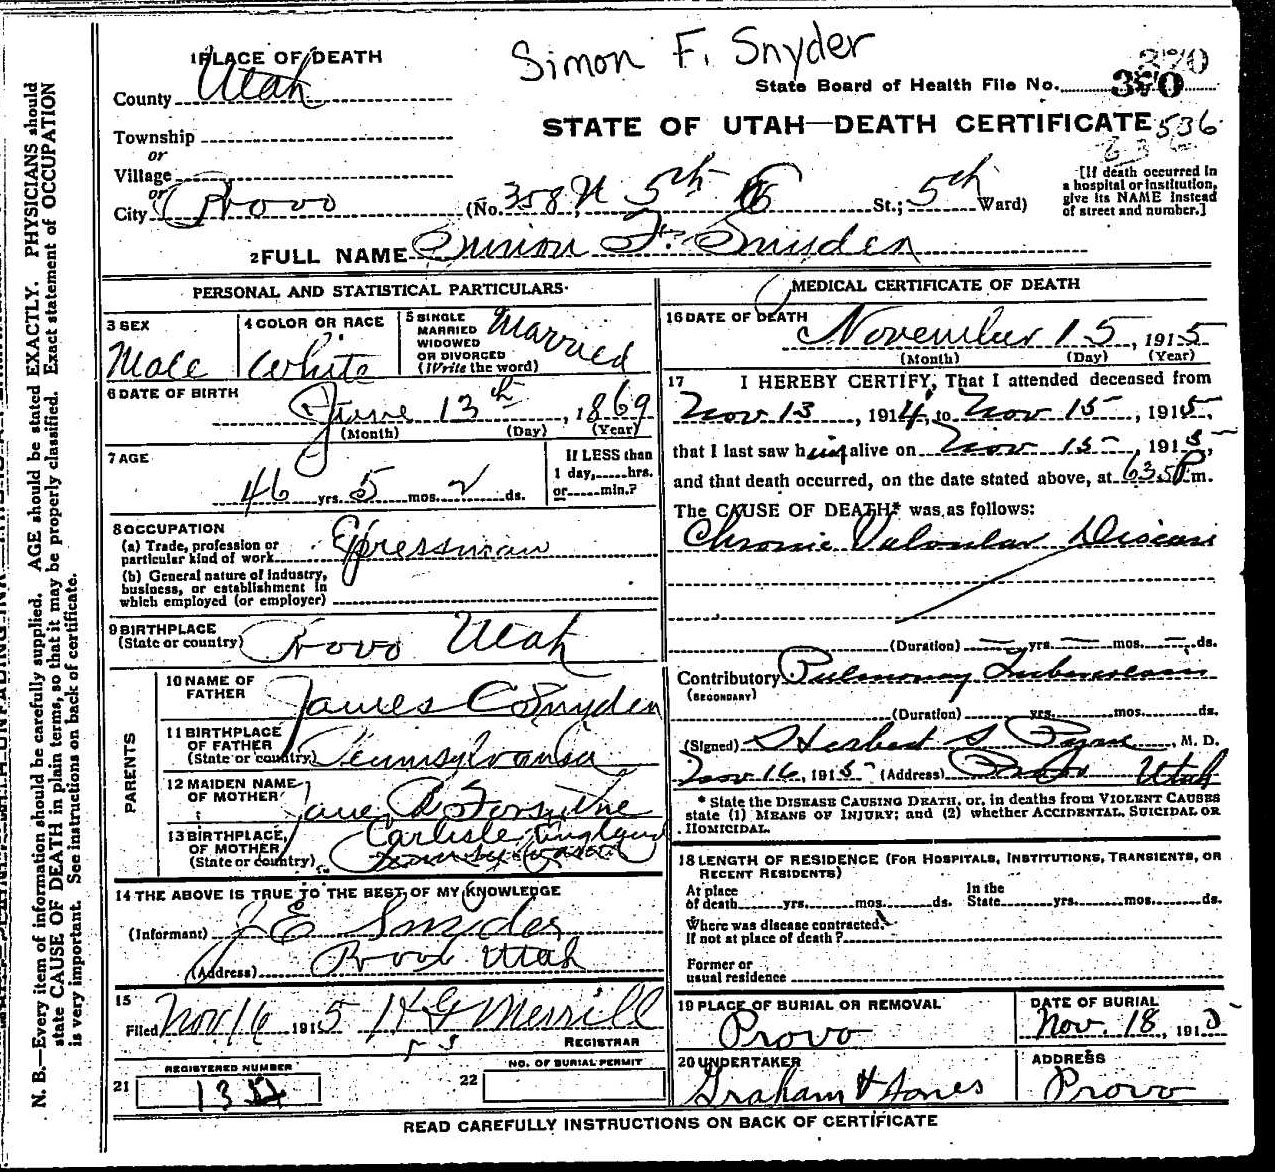 Simon F. Snyder
1 PLACE OF DEATH
County Utah
State Board of Health File No. 370
370
Township
or
Village
or
City Provo
STATE OF UTAH—DEATH CERTIFICATE 536
(No. 358 N 5th W St.; 5th Ward)
[If death occurred in
a hospital or institution,
give its NAME instead
of street and number.]
2 FULL NAME Simon F. Snyder
PERSONAL AND STATISTICAL PARTICULARS
3 SEX
Male
4 COLOR OR RACE
White
5 SINGLE
MARRIED
WIDOWED
OR DIVORCED
(Write the word)
Married
6 DATE OF BIRTH
June 13th, 1869
(Month) (Day) (Year)
7 AGE
46 yrs. 5 mos. 2 ds.
If LESS than
1 day,......hrs.
or......min.?
8 OCCUPATION
(a) Trade, profession or
particular kind of work Expressman
(b) General nature of industry,
business, or establishment in
which employed (or employer)
9 BIRTHPLACE
(State or country) Provo Utah
PARENTS
10 NAME OF
FATHER James C Snyder
11 BIRTHPLACE
OF FATHER
(State or country) Pennsylvania
12 MAIDEN NAME
OF MOTHER Jane Forsythe
13 BIRTHPLACE
OF MOTHER
(State or country) Carlisle England
14 THE ABOVE IS TRUE TO THE BEST OF MY KNOWLEDGE
(Informant) J E Snyder
(Address) Provo Utah
15
Filed Nov 16 1915 H G Merrill
REGISTRAR
REGISTERED NUMBER
21
NO. OF BURIAL PERMIT
22
MEDICAL CERTIFICATE OF DEATH
16 DATE OF DEATH
November 15, 1915
(Month) (Day) (Year)
17 I HEREBY CERTIFY, That I attended deceased from
Nov 13, 1914, to Nov 15, 1915,
that I last saw him alive on Nov 15, 1915,
and that death occurred, on the date stated above, at 6 35 P m.
The CAUSE OF DEATH* was as follows:
Chronic Valvular Disease
(Duration) yrs. mos. ds.
Contributory Pulmonary Tuberculosis
(SECONDARY)
(Duration) yrs. mos. ds.
(Signed) Herbert S Pyne, M. D.
Nov 16, 1915 (Address) Provo Utah
* State the DISEASE CAUSING DEATH, or, in deaths from VIOLENT CAUSES
state (1) MEANS OF INJURY; and (2) whether ACCIDENTAL, SUICIDAL OR
HOMICIDAL.
18 LENGTH OF RESIDENCE (FOR HOSPITALS, INSTITUTIONS, TRANSIENTS, OR
RECENT RESIDENTS)
At place
of death......yrs......mos......ds.
In the
State......yrs......mos......ds.
Where was disease contracted.
If not at place of death?
Former or
usual residence
19 PLACE OF BURIAL OR REMOVAL
Provo
DATE OF BURIAL
Nov. 18, 1915
20 UNDERTAKER
Graham & Jones
ADDRESS
Provo
READ CAREFULLY INSTRUCTIONS ON BACK OF CERTIFICATE
N. B.—Every item of information should be carefully supplied. AGE should be stated EXACTLY. PHYSICIANS should
state CAUSE OF DEATH in plain terms, so that it may be properly classified. Exact statement of OCCUPATION
is very important. See instructions on back of certificate.